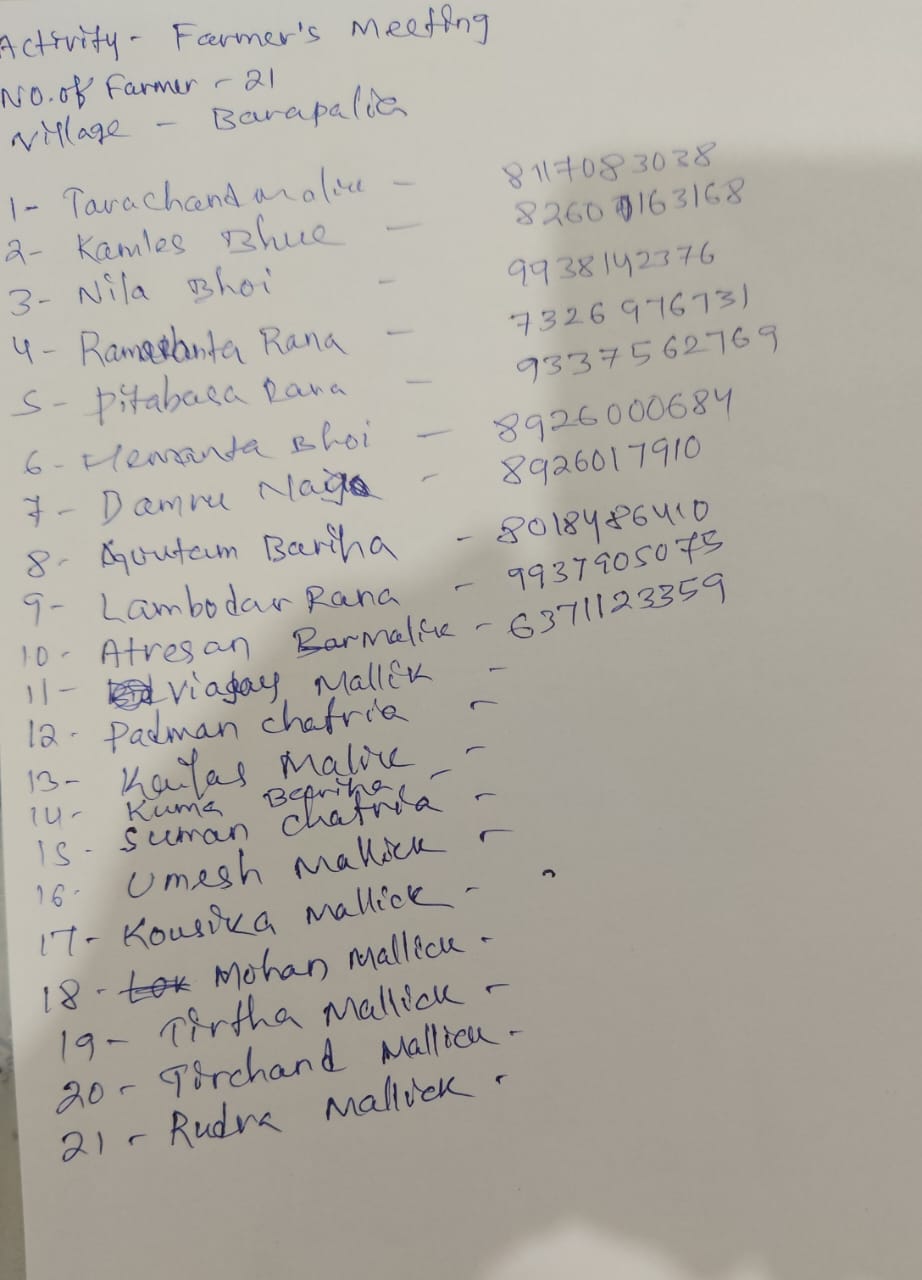 Activity - Farmer's Meeting
No. of Farmer - 21
Village - Barapalia
1- Tarachand malik - 8117083028
2- Kamles Bhue - 8260163168
3- Nila Bhoi - 9938142376
4- Rana - 7326976731
5- Pitabasa Rana - 9337562769
6- Hemanta Bhoi - 8926000684
7- Damru Naga - 8926017910
8- Goutam Bariha - 8018486410
9- Lambodar Rana - 9937905075
10- Atresan Barmalik - 6371123359
11- Mallik -
12- Padman chatria -
13- Kailas Malik -
14- Kuma Bariha -
15- Suman chatria -
16- Umesh Mallick -
17- Kousika Mallick -
18- Mohan Mallick -
19- Tirtha Mallick -
20- Tirchand Mallick -
21- Rudra Mallick -